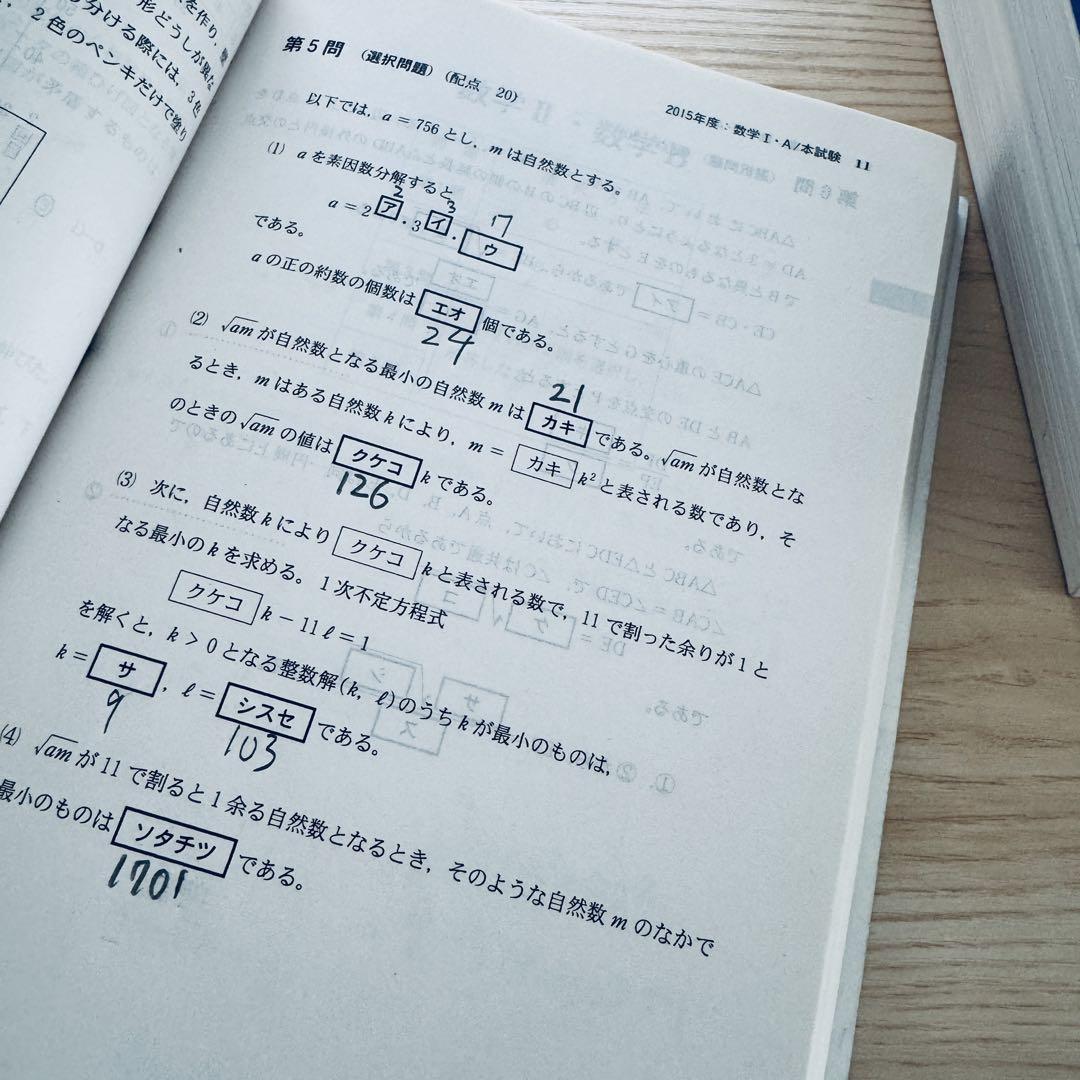 を作り,
形どうしが異な
分ける際には, 3色
2色のペンキだけで塗り
2015年度:数学Ⅰ・A/本試験 11
第5問 (選択問題) (配点 20)
以下では, a = 756 とし, m は自然数とする。
(1) a を素因数分解すると
2 3 17
a = 2 ア ・3 イ ・ ウ
である。
a の正の約数の個数は エオ 個である。
24
21
(2) √am が自然数となる最小の自然数 m は カキ である。√am が自然数とな
るとき, m はある自然数 k により, m = カキ k² と表される数であり, そ
のときの √am の値は クケコ k である。
126
(3) 次に, 自然数 k により クケコ k と表される数で, 11 で割った余りが 1 と
なる最小の k を求める。1次不定方程式
クケコ k − 11ℓ = 1
を解くと, k > 0 となる整数解 (k, ℓ) のうち k が最小のものは,
k = サ , ℓ = シスセ である。
9 103
(4) √am が 11 で割ると 1 余る自然数となるとき, そのような自然数 m のなかで
最小のものは ソタチツ である。
1701